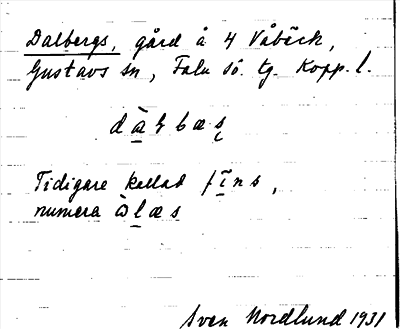 Dalbergs, gård å 4 Våbäck,
Gustavs sn, Falu sö. tg. Kopp. l.
Tidigare kallad fīns,
numera
Sven Nordlund 1931